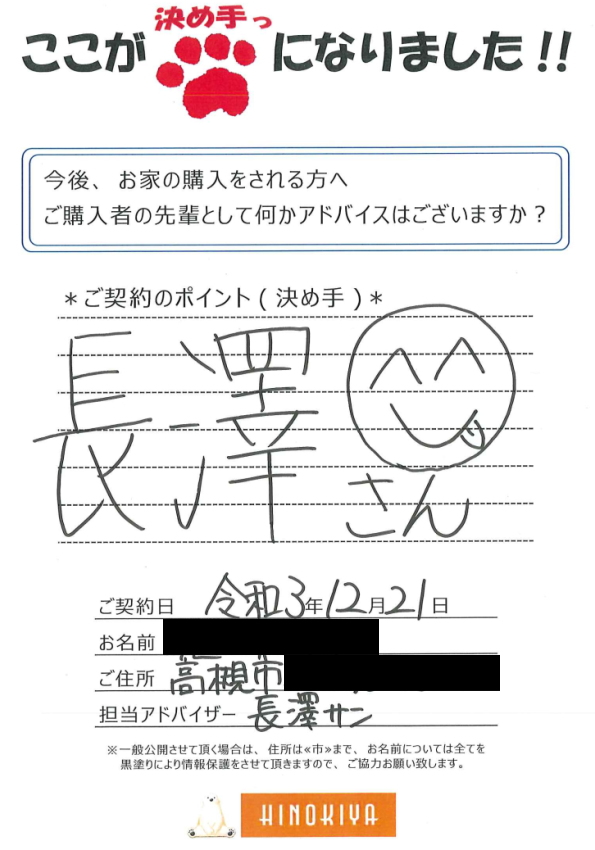 決め手っ
ここが になりました!!
今後、お家の購入をされる方へ
ご購入者の先輩として何かアドバイスはございますか？
＊ご契約のポイント(決め手)＊
長澤
さん
ご契約日 令和3年12月21日
お名前
ご住所 高槻市
担当アドバイザー 長澤サン
※一般公開させて頂く場合は、住所は≪市≫まで、お名前については全てを
黒塗りにより情報保護をさせて頂きますので、ご協力お願い致します。
HINOKIYA